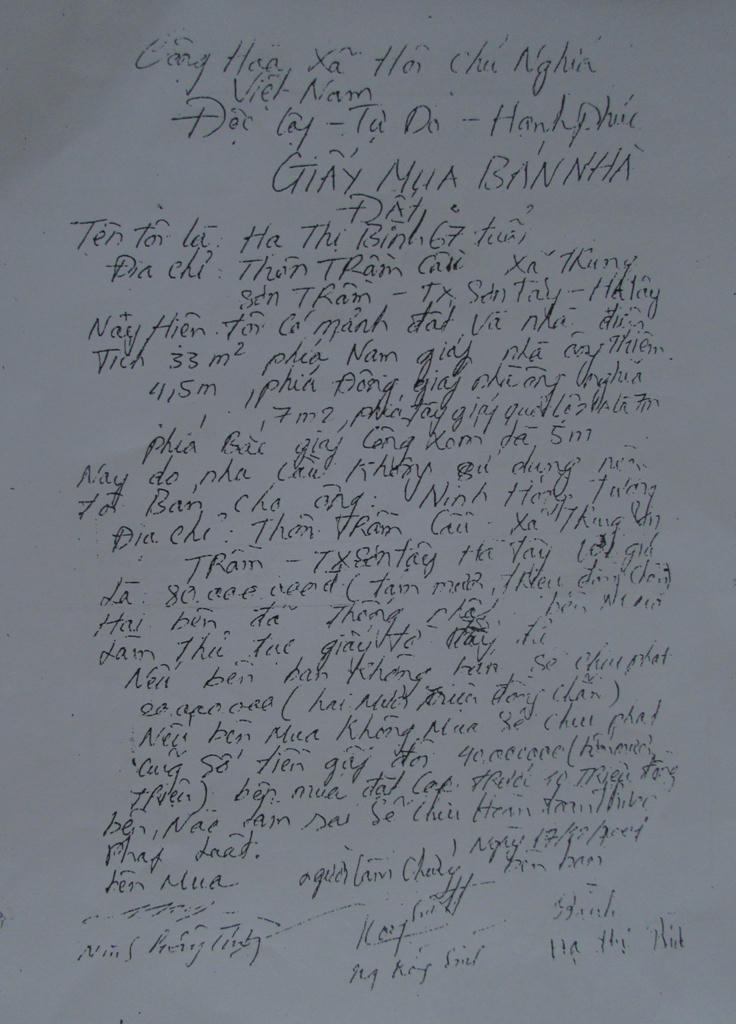 Cộng Hoà Xã Hôi chủ Nghiã
Việt Nam
Độc lập - Tự Do - Hạnh phúc
GIẤY MUA BÁN NHÀ
ĐẤT
Tên tôi là: Hạ Thị Bình 67 tuổi
Địa chỉ: Thôn TRầm Cầu xã Trung
Sơn TRầm - TX Sơn Tây - Hà Tây
Nay Hiên tôi có mảnh đất Và nhà diện
Tích 33 m² phiá Nam giáp nhà ông Thiêm
4,5m, phiá Đông giáp nhà ông nghiã
7m2, phiá tây giáp quốc lộ là 7m
phiá Bắc giáp Cổng xóm là 5m
Nay do nhu Cầu không sử dụng nên
tôi Bán cho ông: Ninh Hồng Tường
Địa chỉ: Thôn TRầm Cầu xã Trung Sơn
TRầm - TX Sơn tây Hà Tây Với giá
Là 80.000.000đ (tám mươi, triệu đồng chẵn)
Hai bên đã thống nhất bên
Làm thủ tục giấy tờ đầy đủ
Nếu bên bán không bán sẽ chịu phạt
20.000.000 (hai mươi triệu đồng chẵn)
Nếu bên mua không mua sẽ chịu phạt
cùng số tiền gấp đôi 40.000000 (bốn mươi
triệu) bên mua đặt cọc trước 10 triệu đồng
bên, Nào làm sai sẽ chịu Hoàn toàn trước
Pháp Luật.
Ngày 17/
bên Mua người làm chứng bên bán
Hạ Thị Bình